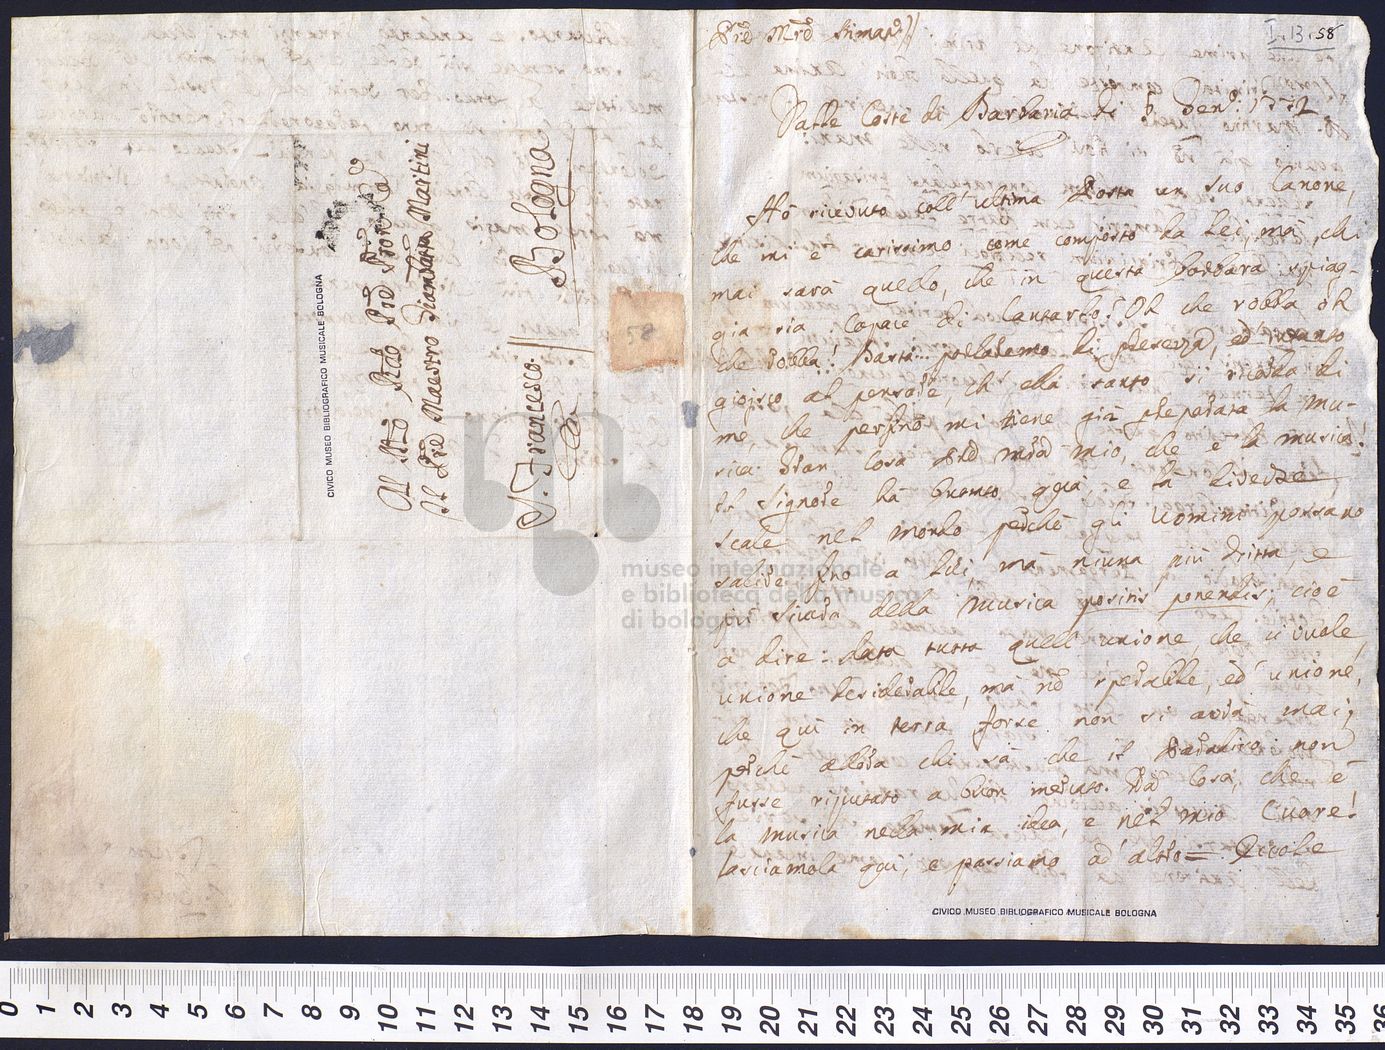 I. 13. 58
Pre Mro Stimamo
Dalle Coste di Barbaria li 6. Gen: 1772
Hò ricevuto coll'ultima Posta un suo Canone,
che mi è carissimo, come composto da Lei, mà chi
mai sarà quello, che in questa barbara spiag-
gia sia capace di Cantarlo? Oh che robba oh
che robba! Basta... parlaremo di presenza, ed intanto
gioisco al pensare, ch' ella tanto si ricorda di
me, che perfino mi tiene già preparata la Mu-
sica. Gran Cosa Pre Mro mio, che è la musica!
Il Signore hà quante quà e là diverse
scale nel mondo perchè gl' Uomini possano
salire fino a Lui, mà niuna più dritta, e
più sicura della Musica positis ponendis; cioè
a dire: data tutta quell' unione, che si vuole,
unione desiderabile, mà nò sperabile, ed unione,
che quì in terra forse non si avrà mai;
perchè allora chi sà che il Paradiso non
fusse riputato a buon mercato. Da Cosa, che è
la musica nella mia idea, e nel mio Cuore!
lasciamola quì, e passiamo ad' altro =
CIVICO MUSEO BIBLIOGRAFICO MUSICALE BOLOGNA
Al Mto Rdo Pre Pron Col
Il Pre Maestro Giambatta Martini
S. Francesco.
Bologna
CIVICO MUSEO BIBLIOGRAFICO MUSICALE BOLOGNA
58
museo internazionale
e biblioteca della musica
di bologna
0 1 2 3 4 5 6 7 8 9 10 11 12 13 14 15 16 17 18 19 20 21 22 23 24 25 26 27 28 29 30 31 32 33 34 35 36